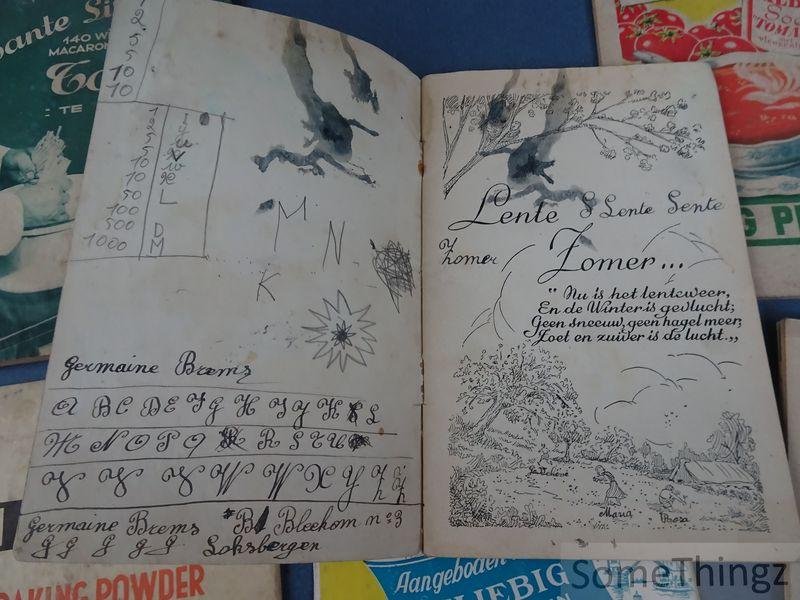 ante
140 W
MACARON
TE
2
5
5
10
10
1
2
5
10
10
50
100
500
1000
V
L
D
M
M N
K
Germaine Brems
A B C D E F G H I J K L
M N O P Q R S T U
V W W X Y Z
Germaine Brems Bleekom nº 3
G G G G G Loksbergen
Lente S Lente Lente
Zomer Zomer...
"Nu is het lenteweer,
En de Winter is gevlucht;
Geen sneeuw, geen hagel meer,
Zoet en zuiver is de lucht.„
Maria Rosa
TOMA
G P
AKING POWDER
Aangeboden
LIEBIG
SomeThingz